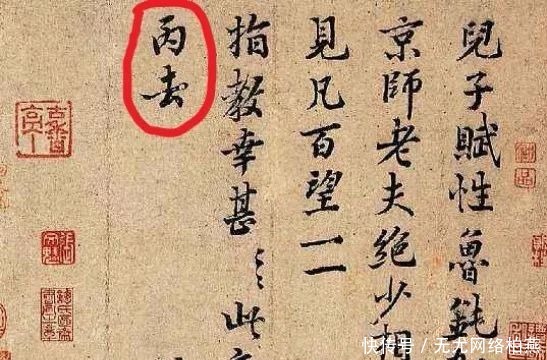 兒子賦性魯鈍
京師老夫絶少相
見凡百望一一
指教幸甚〻此
丙去
快传号／无尤网络柏燕